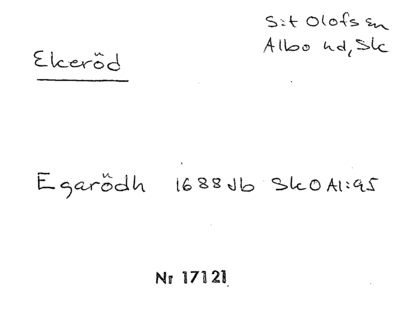 S:t Olofs sn
Albo hd, Sk
Ekeröd
Egarödh 1688 Jb SkO Al:95
Nr 17121